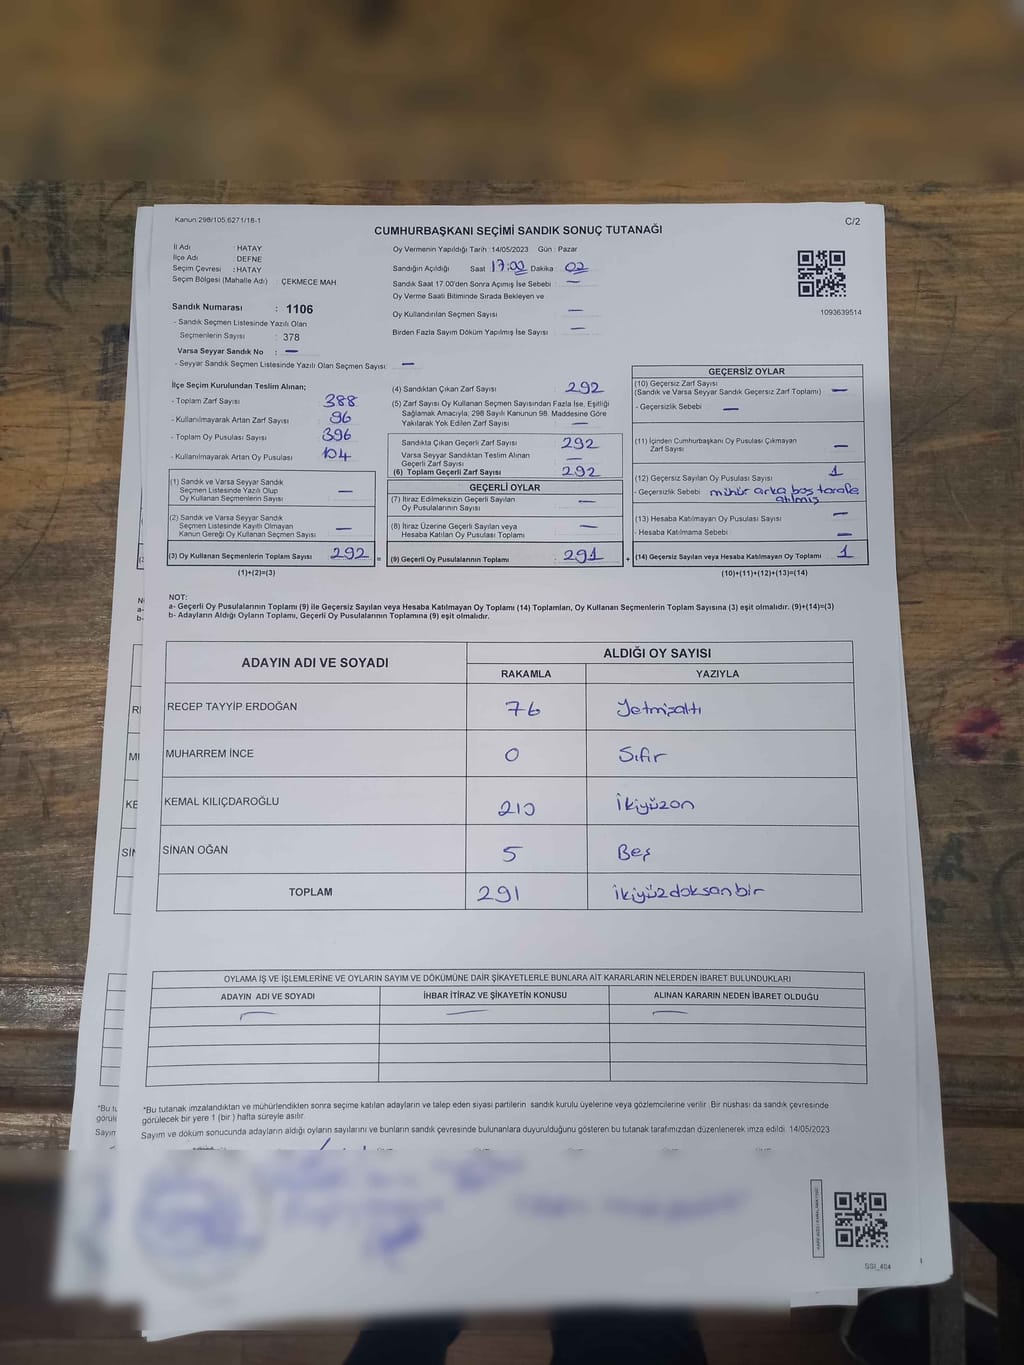 Kanun:298/105,6271/18-1
C/2
CUMHURBAŞKANI SEÇİMİ SANDIK SONUÇ TUTANAĞI
İl Adı : HATAY
İlçe Adı : DEFNE
Seçim Çevresi : HATAY
Seçim Bölgesi (Mahalle Adı) : ÇEKMECE MAH.
Oy Vermenin Yapıldığı Tarih : 14/05/2023 Gün : Pazar
Sandığın Açıldığı Saat 17:00 Dakika : 02
Sandık Saat 17.00'den Sonra Açımış İse Sebebi : —
Oy Verme Saati Bitiminde Sırada Bekleyen ve
Oy Kullandırılan Seçmen Sayısı —
Birden Fazla Sayım Döküm Yapılmış İse Sayısı —
1093639514
Sandık Numarası : 1106
- Sandık Seçmen Listesinde Yazılı Olan
Seçmenlerin Sayısı : 378
Varsa Seyyar Sandık No : —
- Seyyar Sandık Seçmen Listesinde Yazılı Olan Seçmen Sayısı: —
İlçe Seçim Kurulundan Teslim Alınan;
- Toplam Zarf Sayısı 388
- Kullanılmayarak Artan Zarf Sayısı : 96
- Toplam Oy Pusulası Sayısı 396
- Kullanılmayarak Artan Oy Pusulası 104
(1) Sandık ve Varsa Seyyar Sandık
Seçmen Listesinde Yazılı Olup
Oy Kullanan Seçmenlerin Sayısı —
(2) Sandık ve Varsa Seyyar Sandık
Seçmen Listesinde Kayıtlı Olmayan
Kanun Gereği Oy Kullanan Seçmen Sayısı : —
(3) Oy Kullanan Seçmenlerin Toplam Sayısı 292
(1)+(2)=(3)
(4) Sandıktan Çıkan Zarf Sayısı : 292
(5) Zarf Sayısı Oy Kullanan Seçmen Sayısından Fazla İse, Eşitliği
Sağlamak Amacıyla; 298 Sayılı Kanunun 98. Maddesine Göre
Yakılarak Yok Edilen Zarf Sayısı : —
Sandıkta Çıkan Geçerli Zarf Sayısı 292
Varsa Seyyar Sandıktan Teslim Alınan
Geçerli Zarf Sayısı —
(6) Toplam Geçerli Zarf Sayısı 292
GEÇERLİ OYLAR
(7) İtiraz Edilmeksizin Geçerli Sayılan
Oy Pusulalarının Sayısı —
(8) İtiraz Üzerine Geçerli Sayılan veya
Hesaba Katılan Oy Pusulası Toplamı —
(9) Geçerli Oy Pusulalarının Toplamı : 291
=
+
GEÇERSİZ OYLAR
(10) Geçersiz Zarf Sayısı
(Sandık ve Varsa Seyyar Sandık Geçersiz Zarf Toplamı) : —
- Geçersizlik Sebebi : —
(11) İçinden Cumhurbaşkanı Oy Pusulası Çıkmayan
Zarf Sayısı : —
(12) Geçersiz Sayılan Oy Pusulası Sayısı 1
- Geçersizlik Sebebi mühür arka boş tarafa
atılmış
(13) Hesaba Katılmayan Oy Pusulası Sayısı : —
- Hesaba Katılmama Sebebi : —
(14) Geçersiz Sayılan veya Hesaba Katılmayan Oy Toplamı 1
(10)+(11)+(12)+(13)=(14)
NOT:
a- Geçerli Oy Pusulalarının Toplamı (9) ile Geçersiz Sayılan veya Hesaba Katılmayan Oy Toplamı (14) Toplamları, Oy Kullanan Seçmenlerin Toplam Sayısına (3) eşit olmalıdır. (9)+(14)=(3)
b- Adayların Aldığı Oyların Toplamı, Geçerli Oy Pusulalarının Toplamına (9) eşit olmalıdır.
ADAYIN ADI VE SOYADI
ALDIĞI OY SAYISI
RAKAMLA YAZIYLA
RECEP TAYYİP ERDOĞAN 76 Yetmişaltı
MUHARREM İNCE 0 Sıfır
KEMAL KILIÇDAROĞLU 210 İkiyüzon
SİNAN OĞAN 5 Beş
TOPLAM 291 İkiyüzdoksanbir
OYLAMA İŞ VE İŞLEMLERİNE VE OYLARIN SAYIM VE DÖKÜMÜNE DAİR ŞİKAYETLERLE BUNLARA AİT KARARLARIN NELERDEN İBARET BULUNDUKLARI
ADAYIN ADI VE SOYADI İHBAR İTİRAZ VE ŞİKAYETİN KONUSU ALINAN KARARIN NEDEN İBARET OLDUĞU
— — —
*Bu tutanak imzalandıktan ve mühürlendikten sonra seçime katılan adayların ve talep eden siyasi partilerin sandık kurulu üyelerine veya gözlemcilerine verilir. Bir nüshası da sandık çevresinde
görülecek bir yere 1 (bir ) hafta süreyle asılır.
Sayım ve döküm sonucunda adayların aldığı oyların sayılarını ve bunların sandık çevresinde bulunanlara duyurulduğunu gösteren bu tutanak tarafımızdan düzenlenerek imza edildi. 14/05/2023
SSI_404